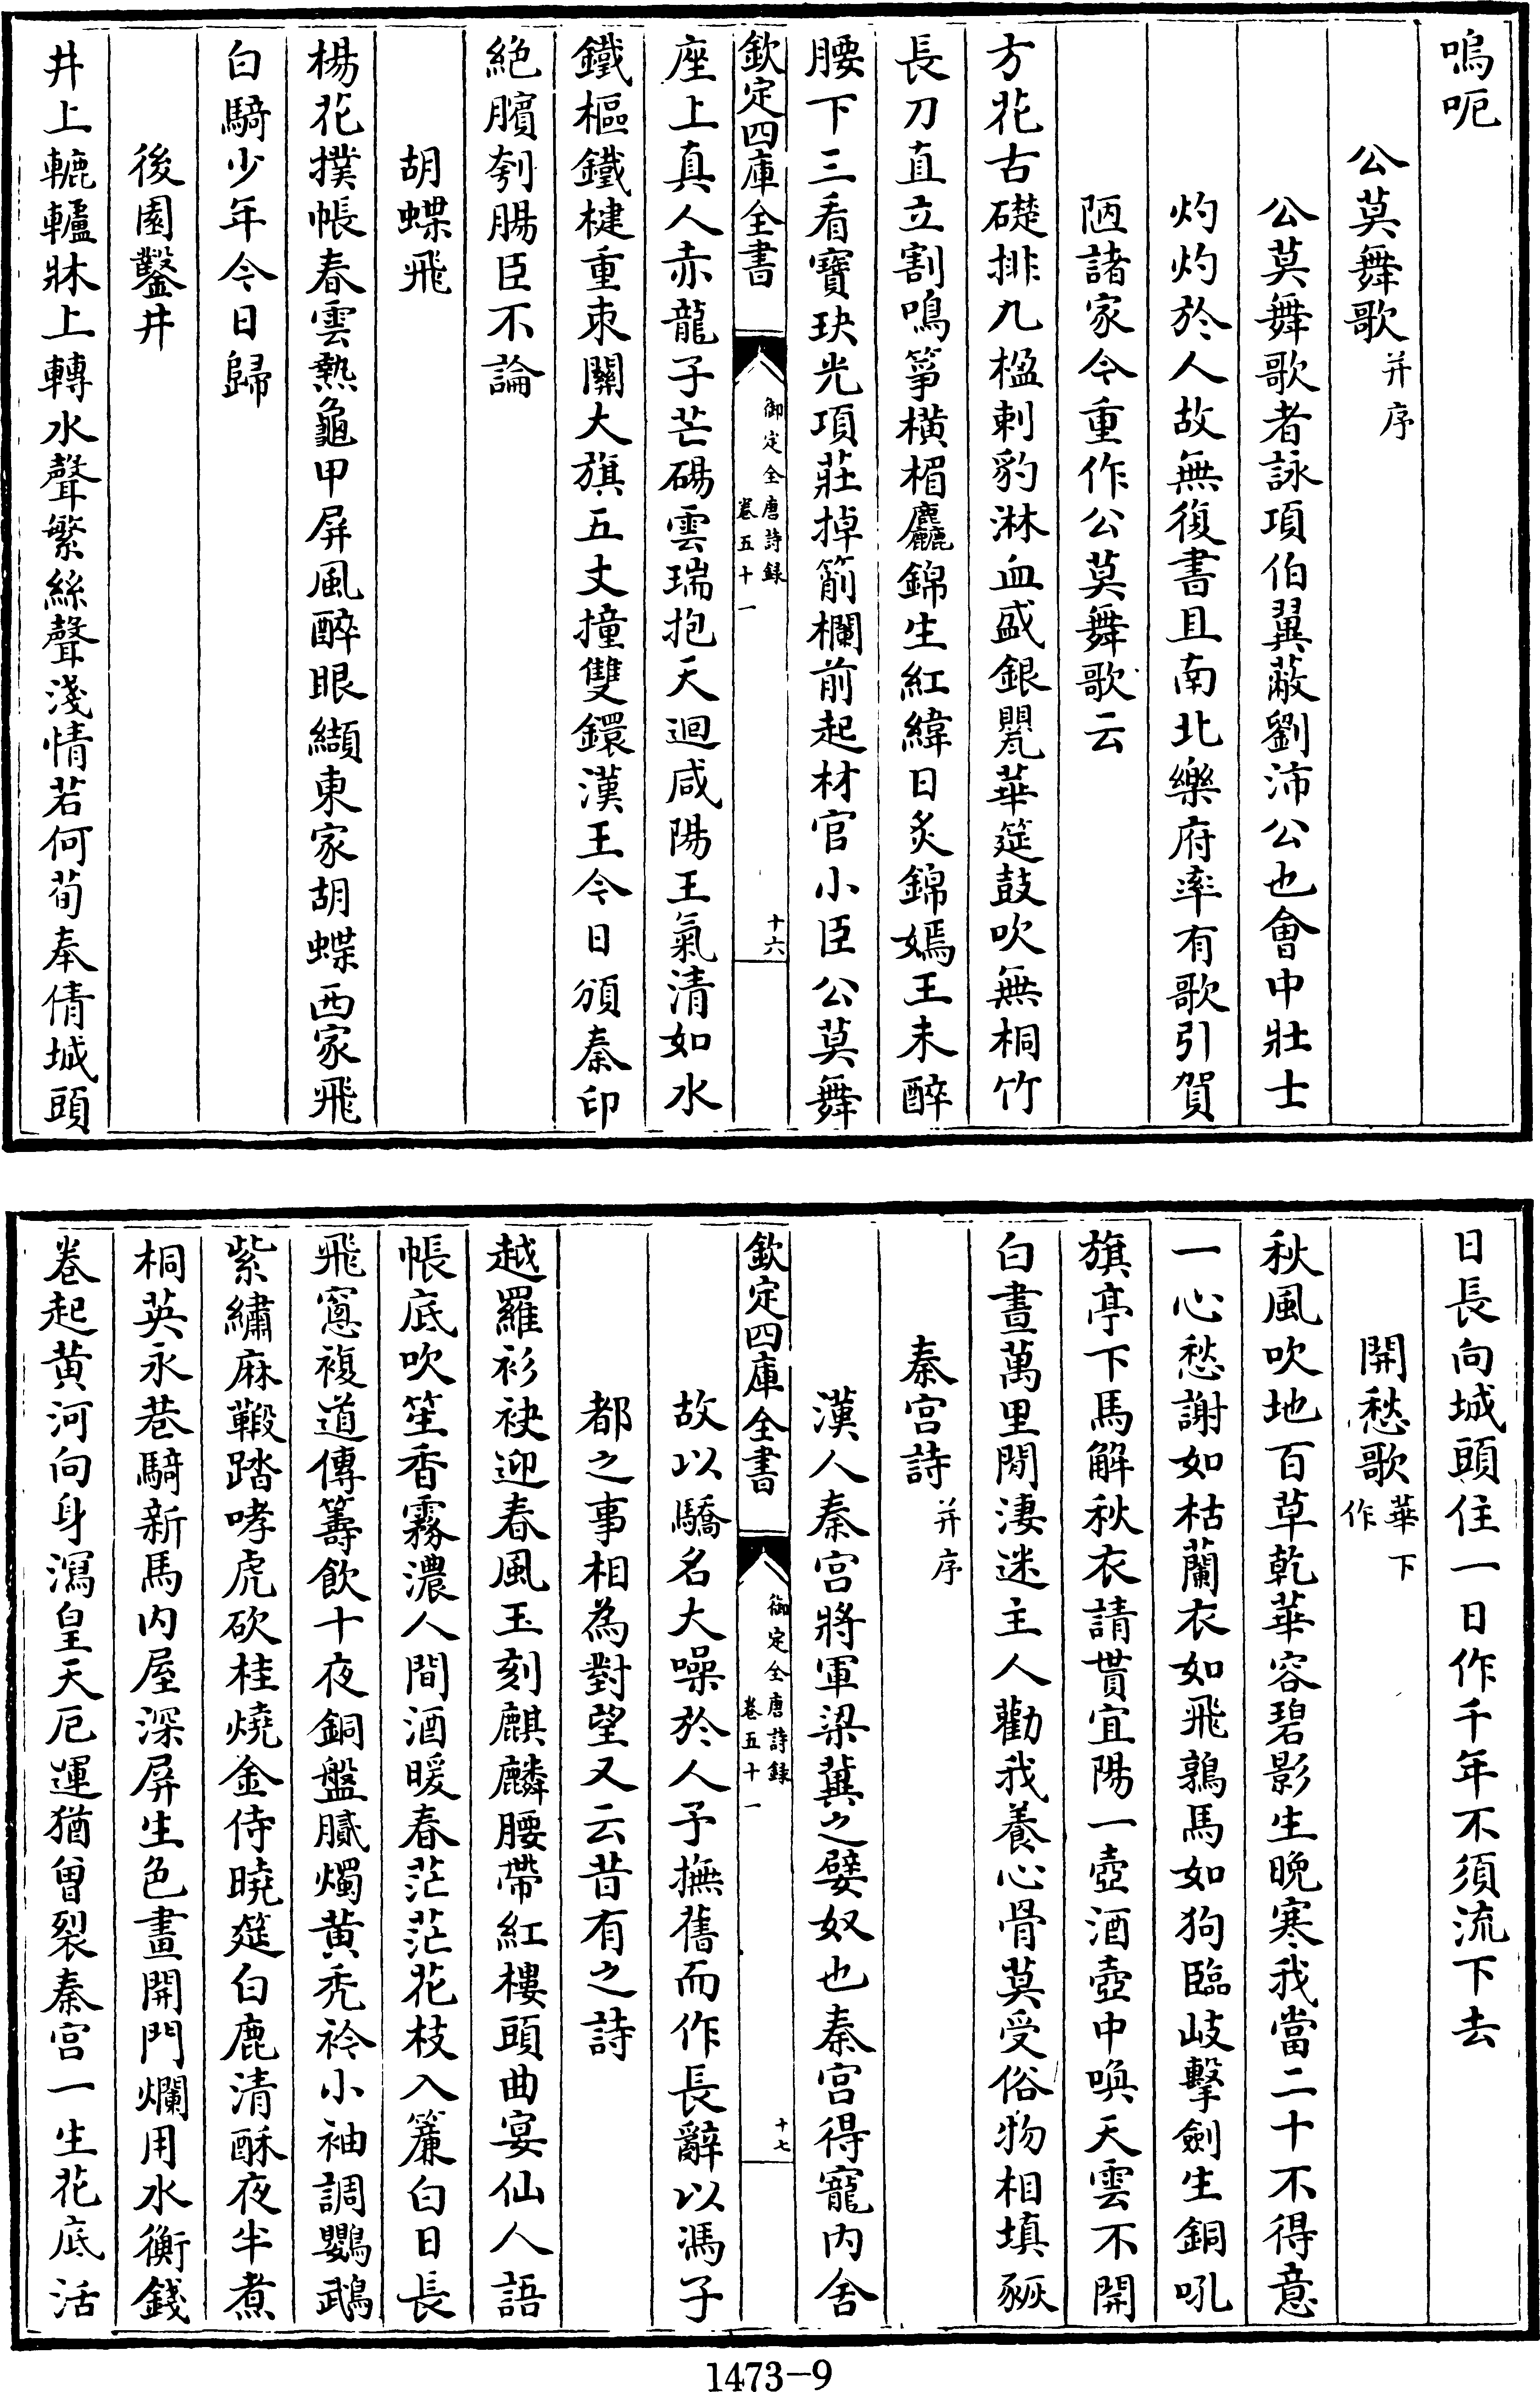 鳴呃
公莫舞歌并序
公莫舞歌者詠項伯翼蔽劉沛公也會中壯士
灼灼於人故無復書且南北樂府率有歌引賀
陋諸家今重作公莫舞歌云
方花古礎排九楹刺豹淋血盛銀甖華筵鼓吹無桐竹
長刀直立割鳴箏横楣麤錦生紅緯日炙錦嫣王未醉
腰下三看寶玦光項莊掉箾欄前起材官小臣公莫舞
欽定四庫全書
御定全唐詩録
卷五十一
十六
座上真人赤龍子芒碭雲瑞抱天迴咸陽王氣清如水
鐵樞鐵楗重束關大旗五丈撞雙鐶漢王今日頒秦印
絶臏刳腸臣不論
胡蝶飛
楊花撲帳春雲熱龜甲屏風醉眼纈東家胡蝶西家飛
白騎少年今日歸
後園鑿井
井上轆轤牀上轉水聲繁絲聲淺情若何荀奉倩城頭
日長向城頭住一日作千年不須流下去
開愁歌華下作
秋風吹地百草乾華容碧影生晚寒我當二十不得意
一心愁謝如枯蘭衣如飛鶉馬如狗臨岐擊劍生銅吼
旗亭下馬解秋衣請貰宜陽一壺酒壺中喚天雲不開
白晝萬里閒淒迷主人勸我養心骨莫受俗物相填豗
秦宫詩并序
漢人秦宫將軍梁冀之嬖奴也秦宫得寵内舍
欽定四庫全書
御定全唐詩録
卷五十一
十七
故以驕名大噪於人予撫舊而作長辭以馮子
都之事相為對望又云昔有之詩
越羅衫袂迎春風玉刻麒麟腰帶紅樓頭曲宴仙人語
帳底吹笙香霧濃人間酒暖春茫茫花枝入簾白日長
飛窻複道傳籌飲十夜銅盤膩燭黄秃衿小袖調鸚鵡
紫繡麻鞾踏哮虎砍桂燒金侍曉筵白鹿清酥夜半煮
桐英永巷騎新馬内屋深屏生色畫開門爛用水衡錢
卷起黄河向身瀉皇天厄運猶曾裂秦宫一生花底活
1473-9